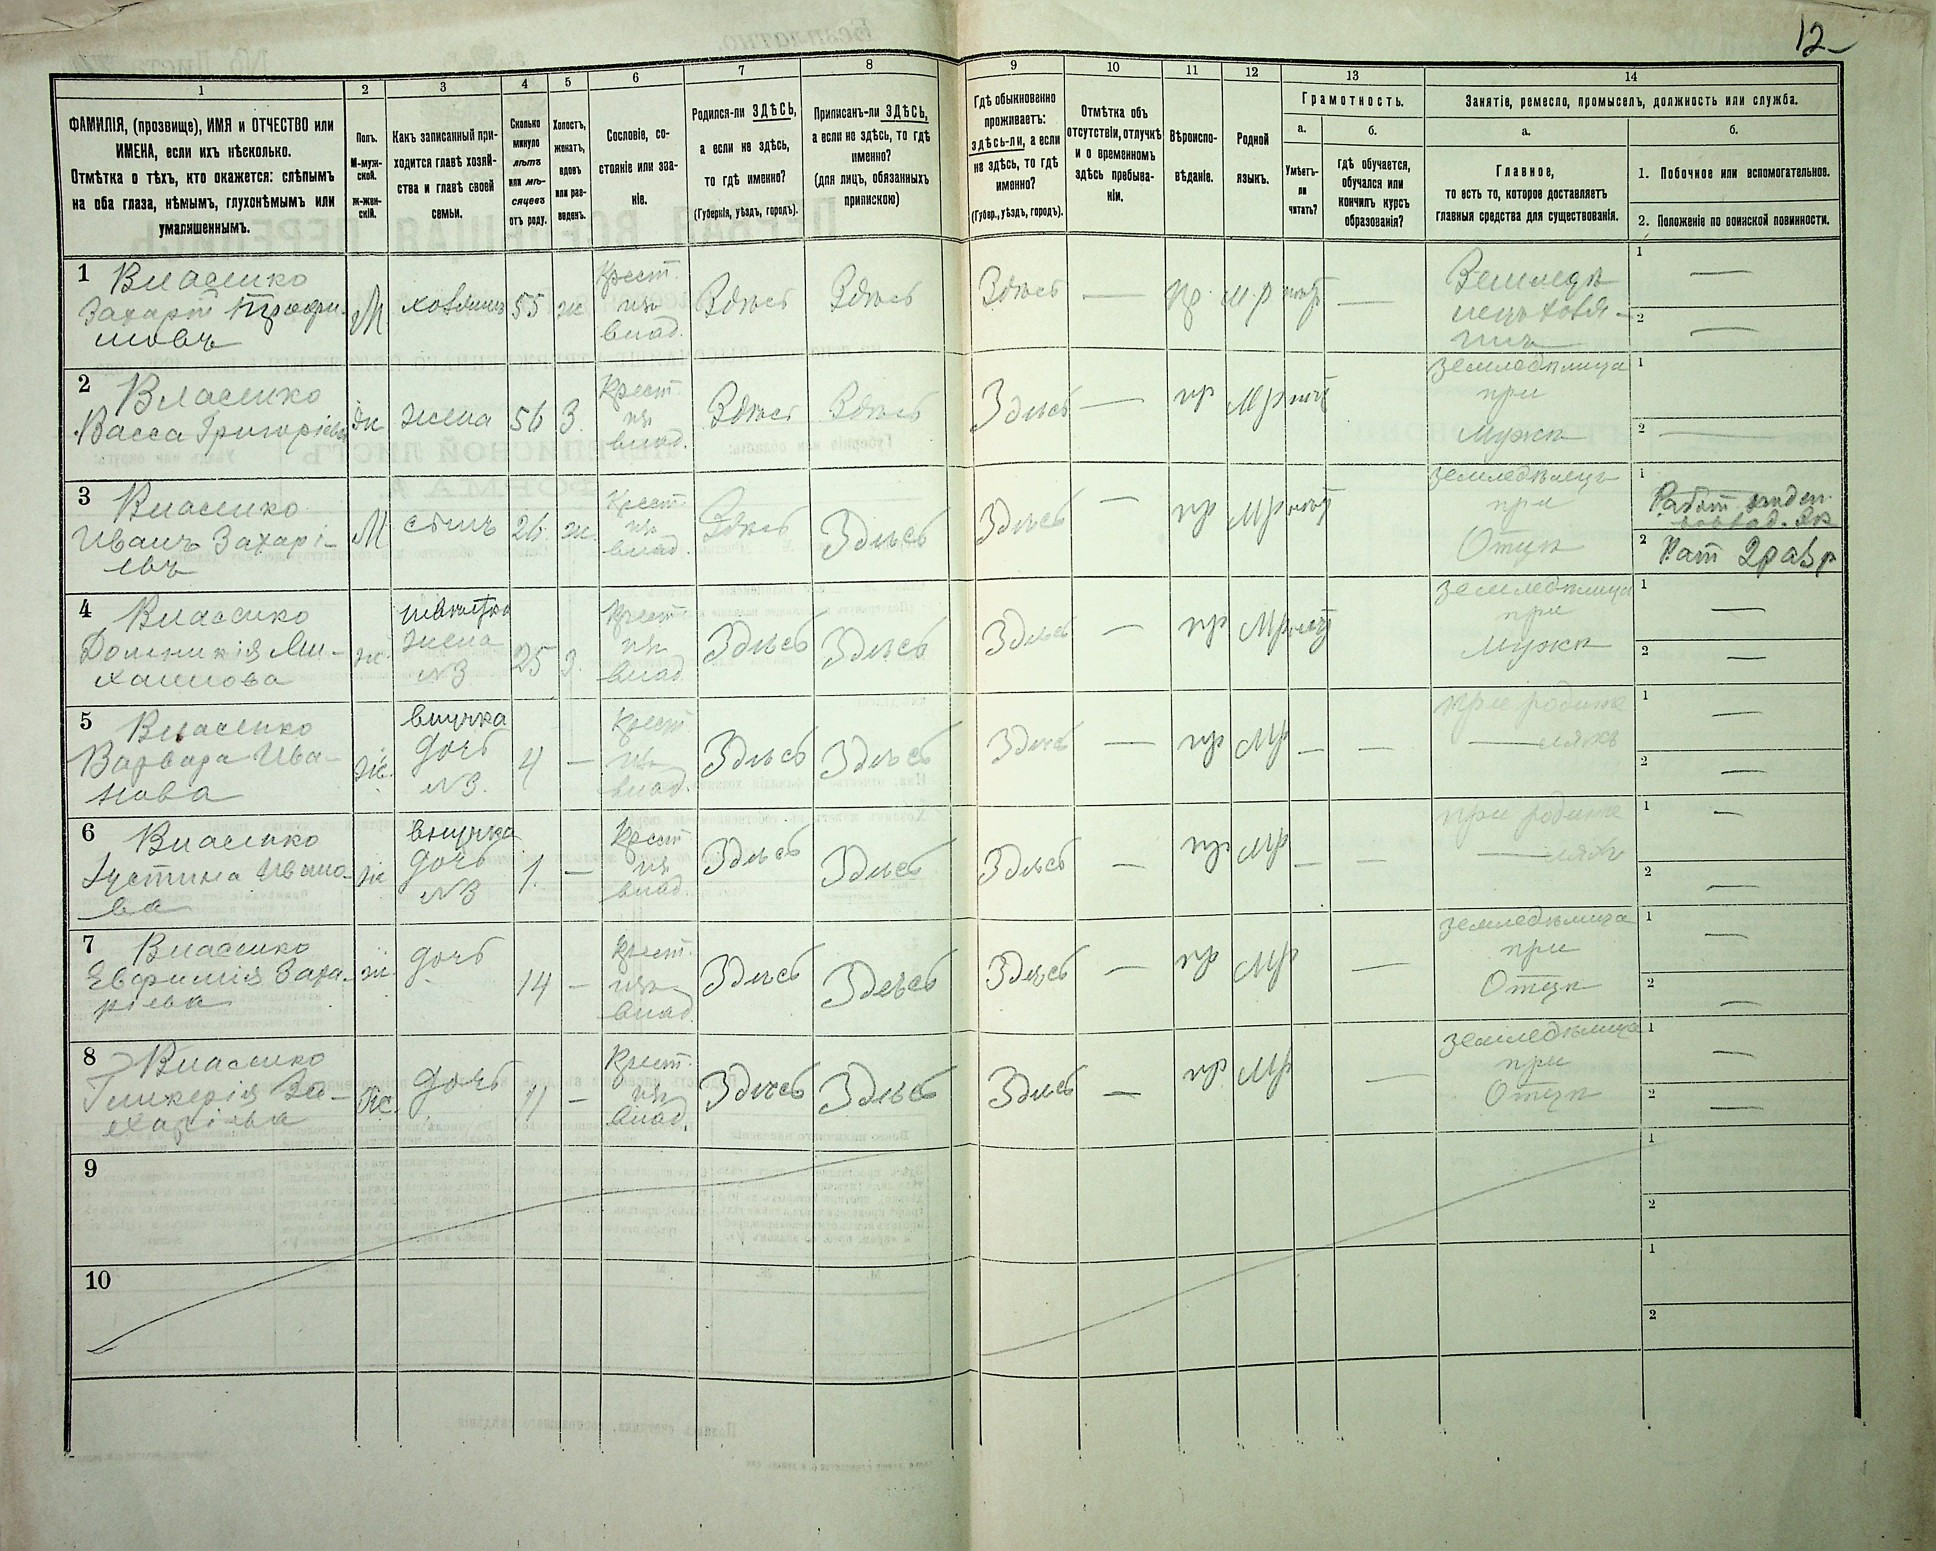 12
1
2
3
4
5
6
7
8
9
10
11
12
13
14
ФАМИЛІЯ, (прозвище), ИМЯ и ОТЧЕСТВО или
ИМЕНА, если ихъ нѣсколько.
Отмѣтка о тѣхъ, кто окажется: слѣпымъ
на оба глаза, нѣмымъ, глухонѣмымъ или
умалишеннымъ.
Полъ.
М-муж-
ской.
Ж-жен-
скій.
Какъ записанный при-
ходится главѣ хозяй-
ства и главѣ своей
семьи.
Сколько
минуло
лѣтъ
или мѣ-
сяцевъ
отъ роду.
Холостъ,
женатъ,
вдовъ
или раз-
веденъ.
Сословіе, со-
стояніе или зва-
ніе.
Родился-ли ЗДѢСЬ,
а если не здѣсь,
то гдѣ именно?
(Губернія, уѣздъ, городъ).
Приписанъ-ли ЗДѢСЬ,
а если не здѣсь, то гдѣ
именно?
(для лицъ, обязанныхъ
припискою)
Гдѣ обыкновенно
проживаетъ:
здѣсь-ли, а если
не здѣсь, то гдѣ
именно?
(Губер., уѣздъ, городъ).
Отмѣтка объ
отсутствіи, отлучкѣ
и о временномъ
здѣсь пребыва-
ніи.
Вѣроиспо-
вѣданіе.
Родной
языкъ.
Грамотность.
а.
Умѣетъ-
ли
читать?
б.
гдѣ обучается,
обучался или
кончилъ курсъ
образованія?
Занятіе, ремесло, промыселъ, должность или служба.
а.
Главное,
то есть то, которое доставляетъ
главныя средства для существованія.
б.
1. Побочное или вспомогательное.
2. Положеніе по воинской повинности.
1 Власенко
Захарій Трофи-
мовъ
М
хозяинъ
55
ж
Крест.
изъ
влад.
Здѣсь
Здѣсь
Здѣсь
—
пр
м.р
нѣтъ
—
Земледѣ
лецъ хозя-
инъ
1 —
2 —
2 Власенко
Васса Григоріева
ж
жена
56
З.
Крест.
изъ
влад.
Здѣсь
Здѣсь
Здѣсь
—
пр
м р
нѣтъ
земледѣлица
при
Мужѣ
1
2 —
3 Власенко
Иванъ Захарі-
евъ
М
сынъ
26.
ж.
Крест.
изъ
влад.
Здѣсь
Здѣсь
Здѣсь
—
пр
М р
нѣтъ
земледѣлецъ
при
Отцѣ
1
2 Рат 2 разр
4 Власенко
Домникія Ми-
хаилова
ж
невѣстка
жена
№3
25
З.
Крест.
изъ
влад
Здѣсь
Здѣсь
Здѣсь
—
пр
М р
нѣтъ
земледѣлица
при
Мужѣ
1 —
2 —
5 Власенко
Варвара Ива-
нова
ж.
внучка
дочь
№3.
4
—
Крест
изъ
влад.
Здѣсь
Здѣсь
Здѣсь
—
пр
Мр
—
—
при родите
—ляхъ
1 —
2 —
6 Власенко
Іустина Ивано-
ва
ж
внучка
дочь
№3
1.
—
Крест
изъ
влад.
Здѣсь
Здѣсь
Здѣсь
—
пр
Мр
—
—
при родите
—ляхъ
1 —
2 —
7 Власенко
Евфимія Заха-
ріева
ж
дочь
14
—
Крест.
изъ
влад
Здѣсь
Здѣсь
Здѣсь
—
пр
Мр
—
земледѣлица
при
Отцѣ
1 —
2 —
8 Власенко
Гликерія За-
харіева
ж.
дочь
11
—
Крест.
изъ
влад.
Здѣсь
Здѣсь
Здѣсь
—
пр
Мр
—
земледѣлица
при
Отцѣ
1 —
2 —
9
1
2
10
1
2